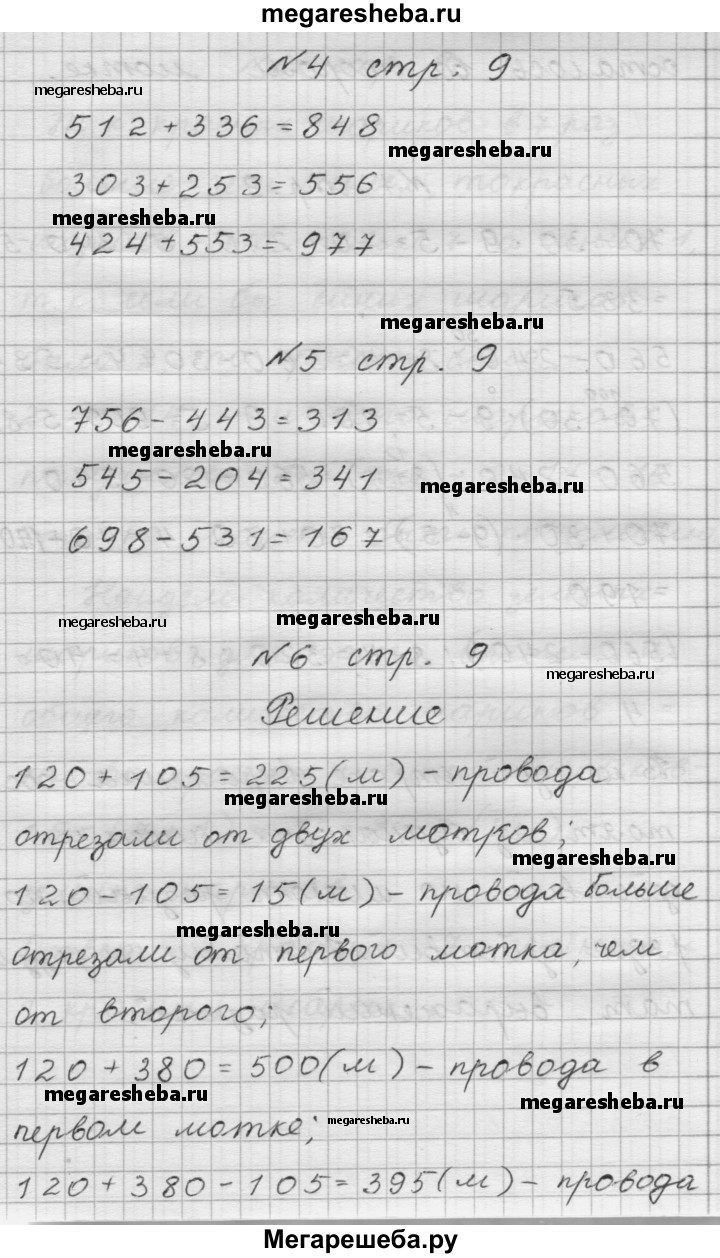 megaresheba.ru
№4 стр. 9
megaresheba.ru
512+336=848
megaresheba.ru
303+253=556
megaresheba.ru
424+553=977
megaresheba.ru
№5 стр. 9
756-443=313
megaresheba.ru
545-204=341
megaresheba.ru
698-531=167
megaresheba.ru
megaresheba.ru
№6 стр. 9
megaresheba.ru
Решение
120+105=225(м)-провода
megaresheba.ru
отрезали от двух мотков;
megaresheba.ru
120-105=15(м)-провода больше
megaresheba.ru
отрезали от первого мотка, чем
от второго;
120+380=500(м)-провода в
megaresheba.ru
megaresheba.ru
первом мотке;
megaresheba.ru
120+380-105=395(м)-провода
Мегарешеба.ру